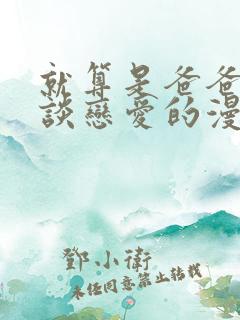 就算是爸爸
談戀愛的漫
鄧小衛
未經同意禁止轉載